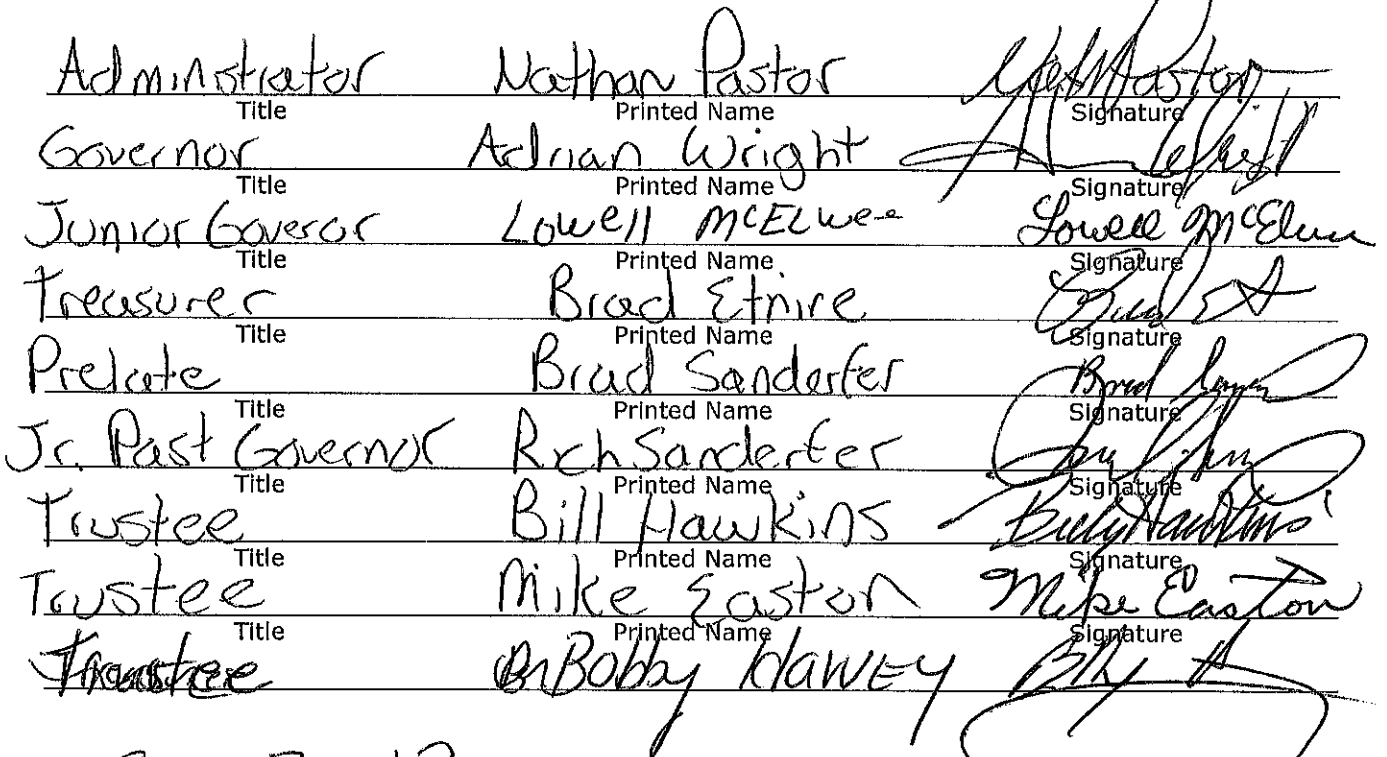 Adminstrator Nathan Pastor
Title Printed Name Signature
Governor Adrian Wright
Title Printed Name Signature
Junior Goveror Lowell McELwee Lowell McElwee
Title Printed Name Signature
Treasurer Brad Etnire
Title Printed Name Signature
Prelate Brad Sanderfer Brad
Title Printed Name Signature
Jr. Past Governor Rich Sanderfer
Title Printed Name Signature
Trustee Bill Hawkins Billy Hawkins
Title Printed Name Signature
Trustee Mike Easton Mike Easton
Title Printed Name Signature
Trustee Bobby HawEy